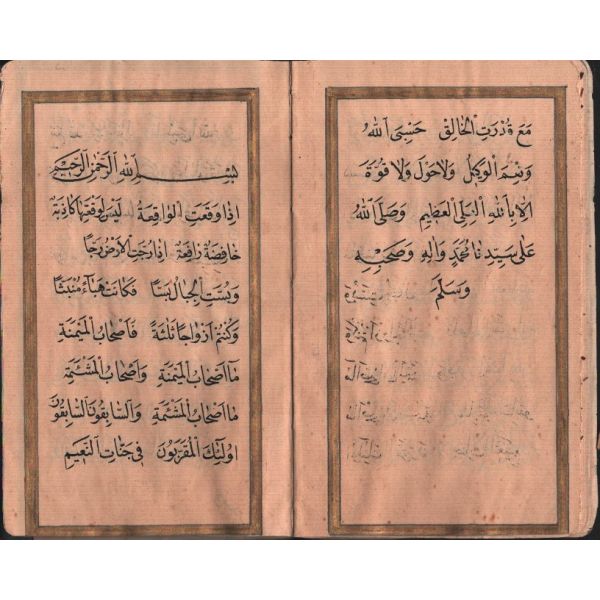 مَعَ قُدْرَتِ الْخَالِقِ حَسْبِىَ اللهُ
وَنِعْمَ الْوَكِيلُ وَلَا حَوْلَ وَلَا قُوَّةَ
اِلَّا بِاللهِ الْعَلِىِّ الْعَظِيمِ وَصَلَّى اللهُ
عَلٰى سَيِّدِنَا مُحَمَّدٍ وَاٰلِهٖ وَصَحْبِهٖ
وَسَلَّمَ
بِسْمِ اللهِ الرَّحْمٰنِ الرَّحِيمِ
اِذَا وَقَعَتِ الْوَاقِعَةُ لَيْسَ لِوَقْعَتِهَا كَاذِبَةٌ
خَافِضَةٌ رَافِعَةٌ اِذَا رُجَّتِ الْاَرْضُ رَجًّا
وَبُسَّتِ الْجِبَالُ بَسًّا فَكَانَتْ هَبَٓاءً مُنْبَثًّا
وَكُنْتُمْ اَزْوَاجًا ثَلٰثَةً فَاَصْحَابُ الْمَيْمَنَةِ
مَٓا اَصْحَابُ الْمَيْمَنَةِ وَاَصْحَابُ الْمَشْئَمَةِ
مَٓا اَصْحَابُ الْمَشْئَمَةِ وَالسَّابِقُونَ السَّابِقُونَ
اُولٰٓئِكَ الْمُقَرَّبُونَ فِى جَنَّاتِ النَّعِيمِ